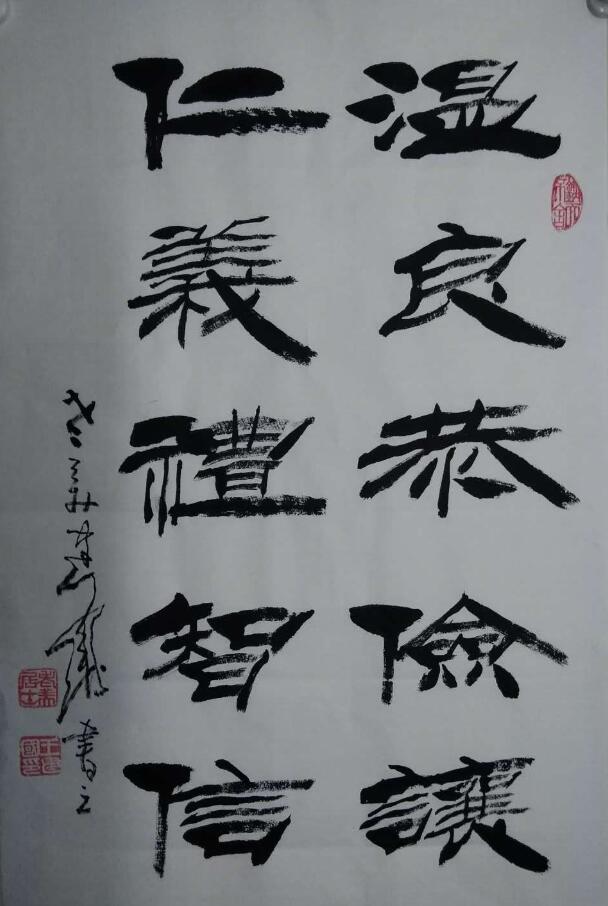 温良恭儉讓
仁義禮智信
書之